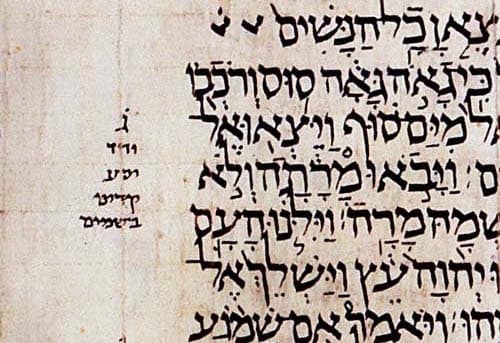 צֶאןָ כָל הַנָּשִׁים
כִּי גָאֹה גָּאָה סוּס וְרֹכְבוֹ
ל מִיַּם סוּף וַיֵּצְאוּ אֶל
ם׃ וַיָּבֹאוּ מָרָתָה וְלֹא
שְׁמָהּ מָרָה׃ וַיִּלֹּנוּ הָעָם
ו יְהוָה עֵץ וַיַּשְׁלֵךְ אֶל
הוּ׃ וַיֹּאמֶר אִם שָׁמֹעַ
ג̇
וחד
יסע
קדים
בשמים